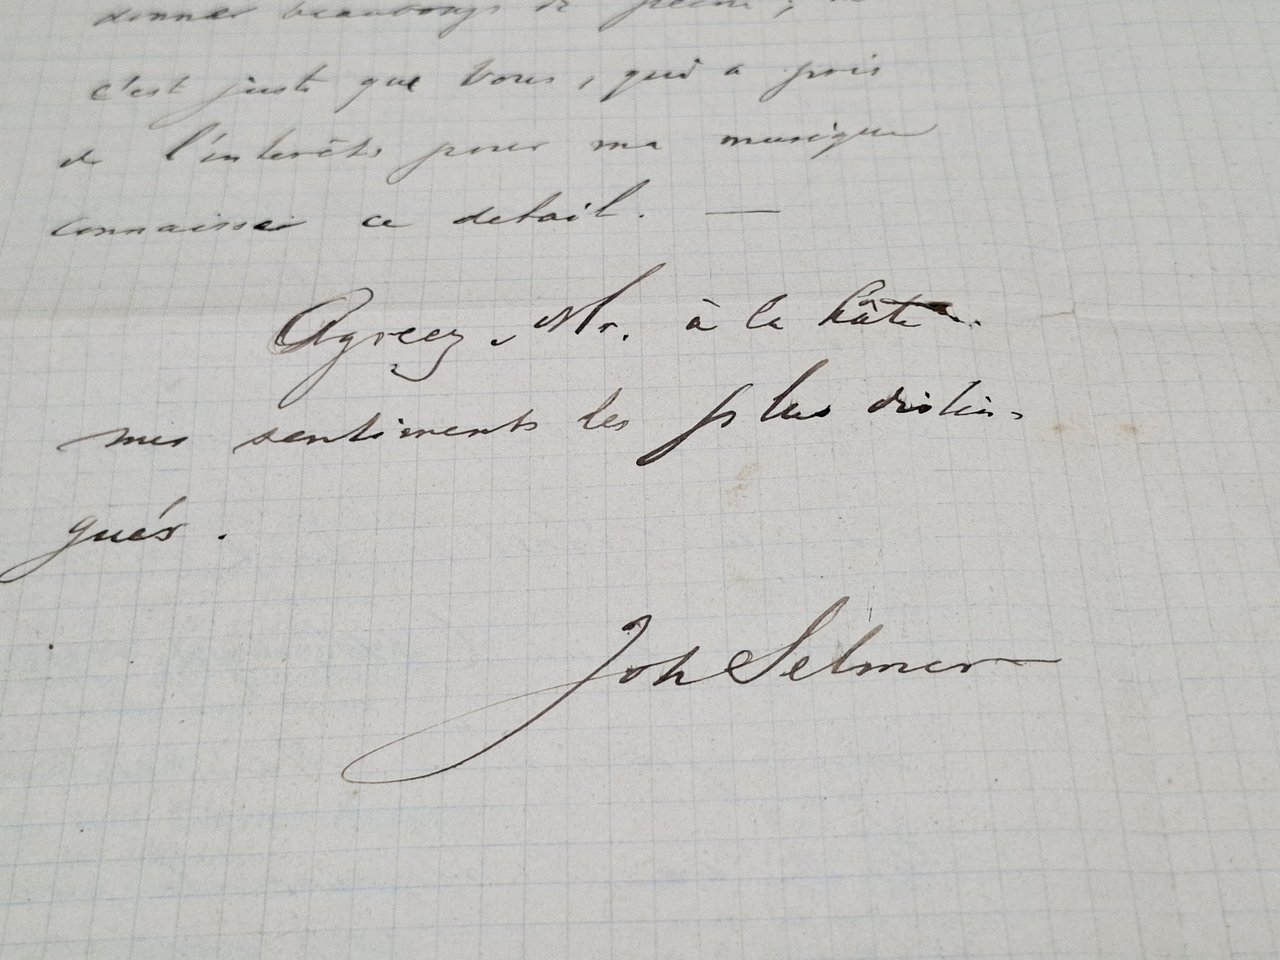 donner beaucoup de peine;
c'est juste que Vous, qui a pris
de l'interêts pour ma musique
connaisser ce detail. —
Agreez, Mr. à la hâte.
mes sentiments les plus distin-
gués.
Joh Selmer